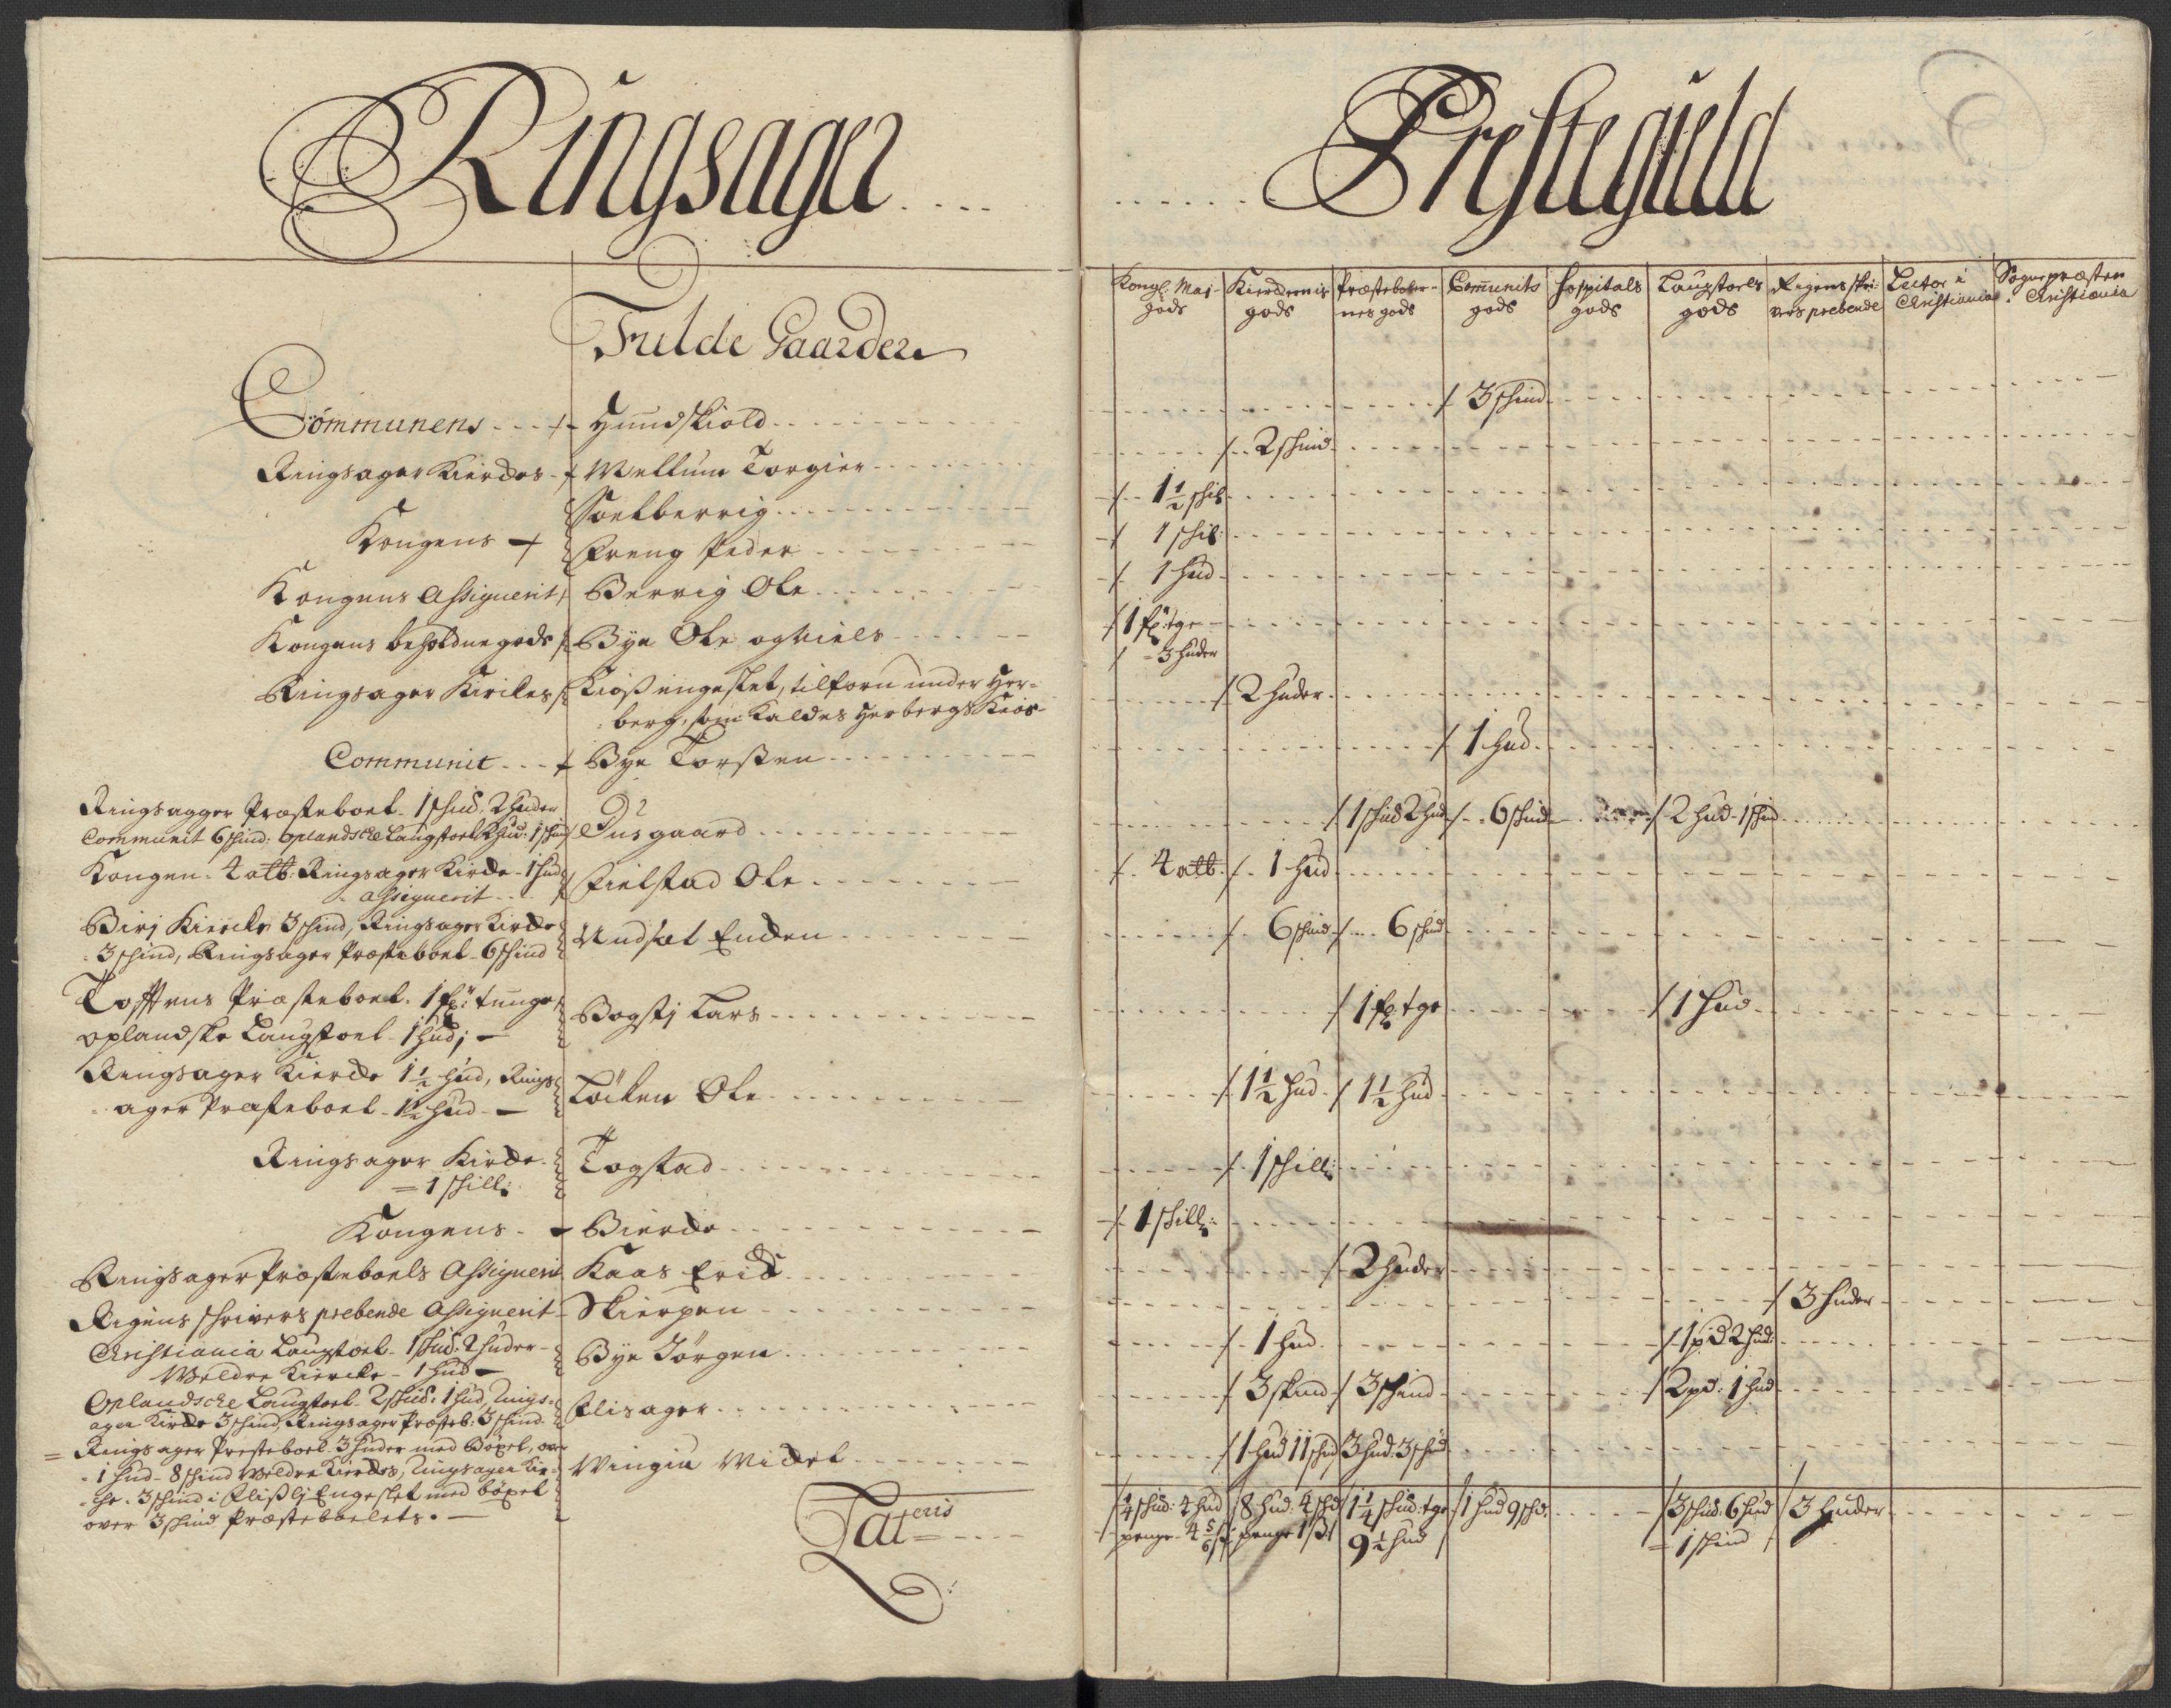 Ringsager .... ...... Prestegield
Kongl: Maj- gods
Kierdernis gods
Præsteboler- nes gods
Communits gods
Hospitals gods
Laugstoels gods
Regens skri- vers prebende
Lector i Christiania
Sogne præsten i Christiania
Fulde Gaarder
Communens - Hundskiold - 3 skind
Ringsager Kierckes - Mellum Torgier - 2 skind
Soelberrig - 1 1/2 skil
Kongens - Freng Peder - 1 skil:
Kongens Assignerit, Berrig Ole - 1 hud
Kongens beholdne gods Bye Ole og Niels - 1 sk: tge
3 huder
Ringsager Kirkes Kiøs engeslet, tilforn under Her-
berg, som kaldes Herbergs Kiøs - 2 huder
Communit - Bye Torsten - 1 hud
Ringsagger Præsteboel 1 skud. 2 huder
Communit 6 skind: Oplandsche Laugstoel 2 hud: 1 skind Ousgaard - 1 skud 2 hud - 6 skind - 2 hud - 1 skind
Kongen 4 att: Ringsager Kircke - 1 hud
Assignerit - Fielstad Ole - 4 att - 1 hud
Birj Kiercke 3 skind, Ringsager Kircke
3 skind, Ringsager Præsteboel 6 skind Undset Enden - 6 skind - 6 skind
Toffens Præsteboel 1 sk: tunge,
oplandske Laugstoel 1 hud; - Bogstj Lars - 1 sk tge - 1 hud
Ringsager Kiercke 1 1/2 hud, Rings-
ager Præsteboel 1 1/2 hud - Løcken Ole - 1 1/2 hud - 1 1/2 hud
Ringsager Kircke
= 1 skill: Togstad - 1 skill:
Kongens - Biercke - 1 skill:
Ringsager Præsteboels Assignerit Kaas Erick - 2 huder
Regens schrivers prebende Assignerit - Skierpen - 3 huder
Christiania Laugstoel 1 skud: 2 huder -
Weldre Kiercke - 1 hud - Bye Jörgen - 1 hud - 1 pd 2 hud:
Oplandsche Laugstoel 2 skud: 1 hud, Rings-
ager Kircke 3 skind, Ringsager Præsteb: 3 skind Flisager - 3 skind - 3 skind - 2 pd: 1 hud
= Ringsager Presteboel 3 huder med Böxel, over
1 hud - 8 skind Weldre Kierckes, Ringsager Kir-
che 3 skind i Engeslet med böxel
over 3 skind Præsteboelets. - Wingin Midel - 1 hud 11 skind 3 hud: 3 skind
Lateris
1/4 skud: 4 hud
penge - 4 5/6 s
8 hud: 4 skd
penge 1 s
1 1/4 skud: tge
9 1/2 hud
1 hud 9 skd.
3 skud: 6 hud
= 1 skind
3 huder